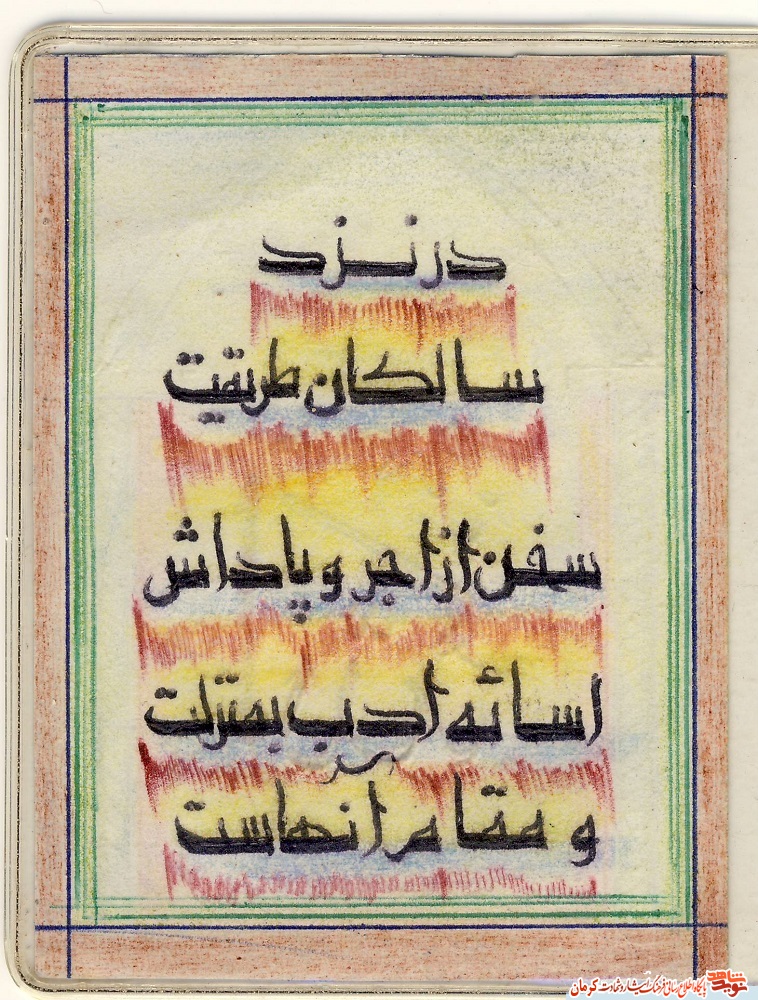 در نزد
سالکان طریقت
سخن از اجر و پاداش
اسائه ادب بمنزلت
و مقام آنهاست
نوید شاهد
پایگاه اطلاع رسانی فرهنگ ایثار و شهادت کرمان